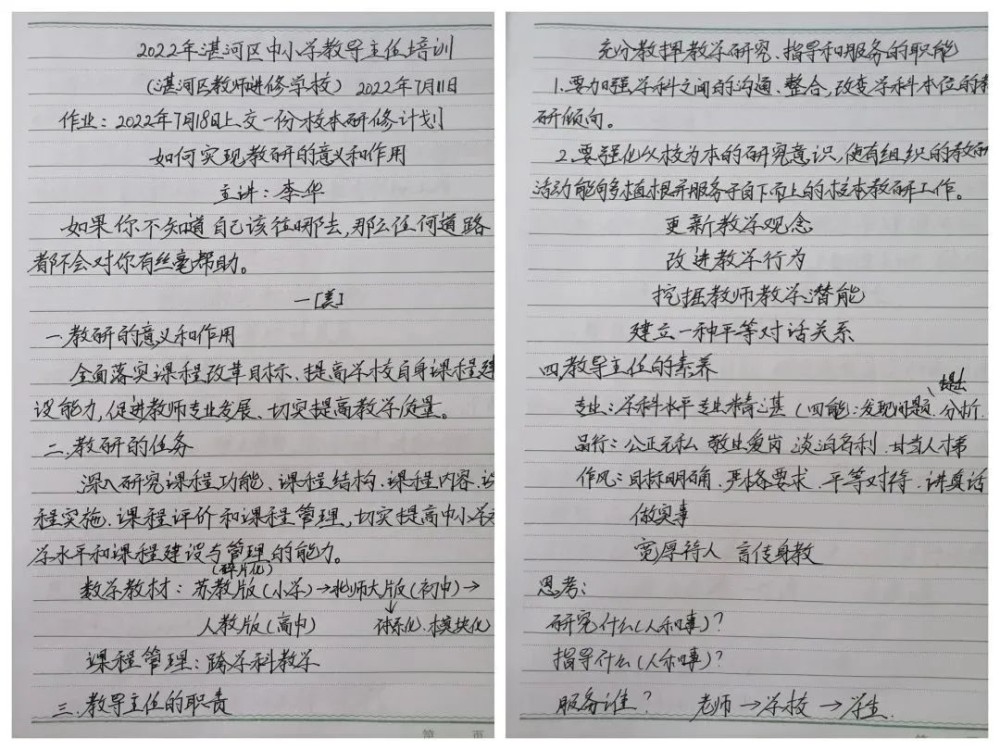 2022年湛河区中小学教导主任培训
(湛河区教师进修学校) 2022年7月11日
作业：2022年7月18日上交一份校本研修计划
如何实现教研的意义和作用
主讲：李华
如果你不知道自己该往哪去,那么任何道路
都不会对你有丝毫帮助。
一[美]
一.教研的意义和作用
全面落实课程改革目标、提高学校自身课程建
设能力,促进教师专业发展、切实提高教学质量。
二.教研的任务
深入研究课程功能、课程结构.课程内容.课
程实施.课程评价和课程管理,切实提高中小学教
学水平和课程建设与管理的能力。
(碎片化)
数学教材：苏教版(小学)→北师大版(初中)→
人教版(高中) 体系化.模块化
课程管理：跨学科教学
三.教导主任的职责
充分教挥教学研究、指导和服务的职能
1.要加强学科之间的沟通、整合,改变学科本位的教
研倾向。
2.要强化以校为本的研究意识,使有组织的教研
活动能够植根并服务于自下而上的校本教研工作。
更新教学观念
改进教学行为
挖掘教师教学潜能
建立一种平等对话关系
四.教导主任的素养
提出
专业：学科水平 专业精湛 (四能：发现问题、分析
品行：公正无私 敬业爱岗 淡泊名利 甘当人梯
作风：目标明确.严格要求.平等对待.讲真话
做实事
宽厚待人 言传身教
思考：
研究什么(人和事)?
指导什么(人和事)?
服务谁? 老师→学校→学生.
第 页